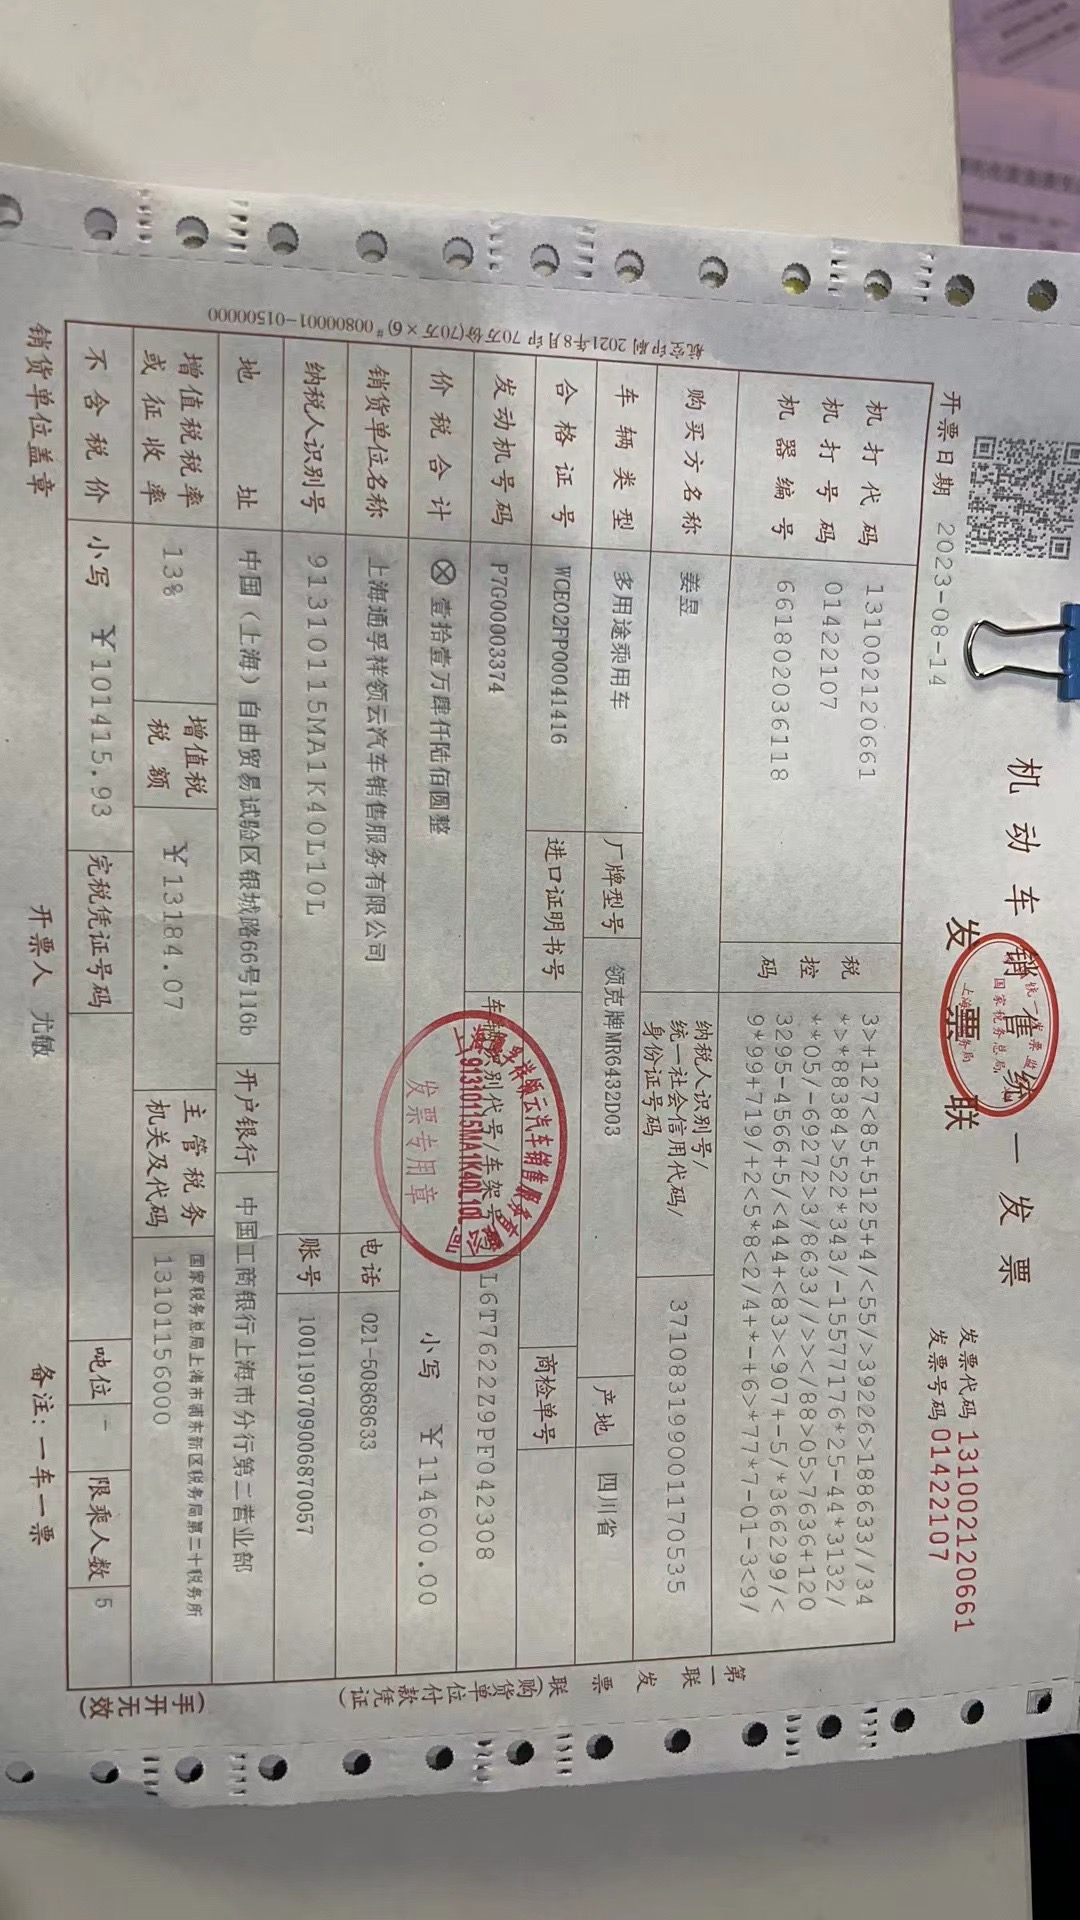 机动车销售统一发票
发票联
发票代码 131002120661
发票号码 01422107
开票日期 2023-08-14
机打代码 131002120661
机打号码 01422107
机器编号 661802036118
税控码
3>+127<85+5125+4/<55/>39226>188633//34
*>*88384>522*343/-15577176*25-44*3132/
**05/-69272>3/8633//>></88>05>7636+120
3295-4566+5/<444+<83><907+-5/*366299/<
9*99+719/+2<5*8<2/4+*-+6>*77*7-01-3<9/
购买方名称 姜昱 纳税人识别号/统一社会信用代码/身份证号码 371083199001170535
车辆类型 多用途乘用车 厂牌型号 领克牌MR6432D03 产地 四川省
合格证号 WCE02FP00041416 进口证明书号 商检单号
发动机号码 P7G00003374 车辆识别代号/车架号码 L6T7622Z9PF042308
价税合计 ⊗壹拾壹万肆仟陆佰圆整 小写 ¥114600.00
销货单位名称 上海通孚祥领云汽车销售服务有限公司 电话 021-50868633
纳税人识别号 91310115MA1K40L10L 账号 1001190709006870057
地址 中国（上海）自由贸易试验区银城路66号116b 开户银行 中国工商银行上海市分行第二营业部
增值税税率或征收率 13% 增值税税额 ¥13184.07 主管税务机关及代码 国家税务总局上海市浦东新区税务局第二十税务所
13101156000
不含税价 小写 ¥101415.93 完税凭证号码 吨位 - 限乘人数 5
销货单位盖章 开票人 尤敏 备注：一车一票
第一联 发票联（购货单位付款凭证）
（手开无效）
税空印刷 2021年8月印 70万份(70万×6)# 00800001-01500000
国家税务总局
91310115MA1K40L10L
发票专用章